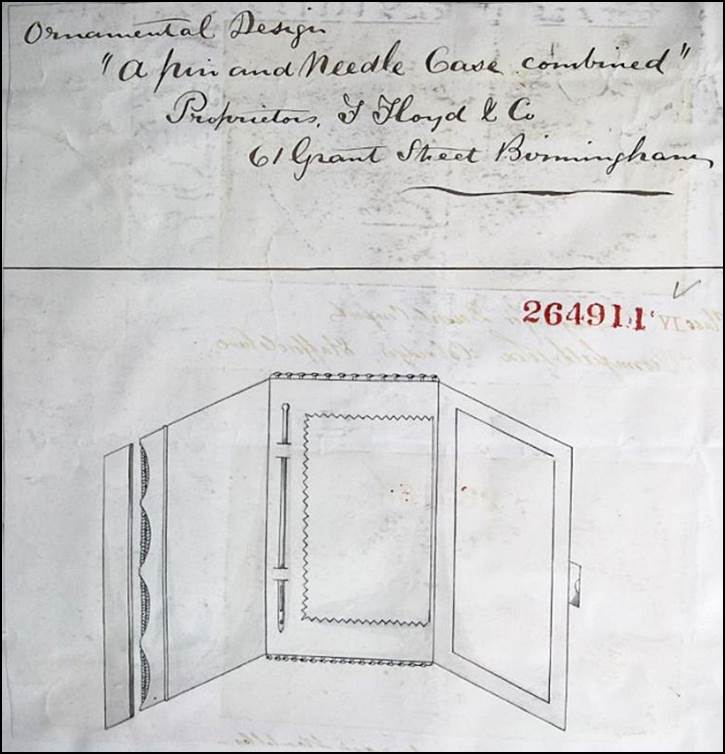 Ornamental Design
"A pin and Needle Case combined"
Proprietors, F Floyd & Co
61 Grant Street Birmingham
264911